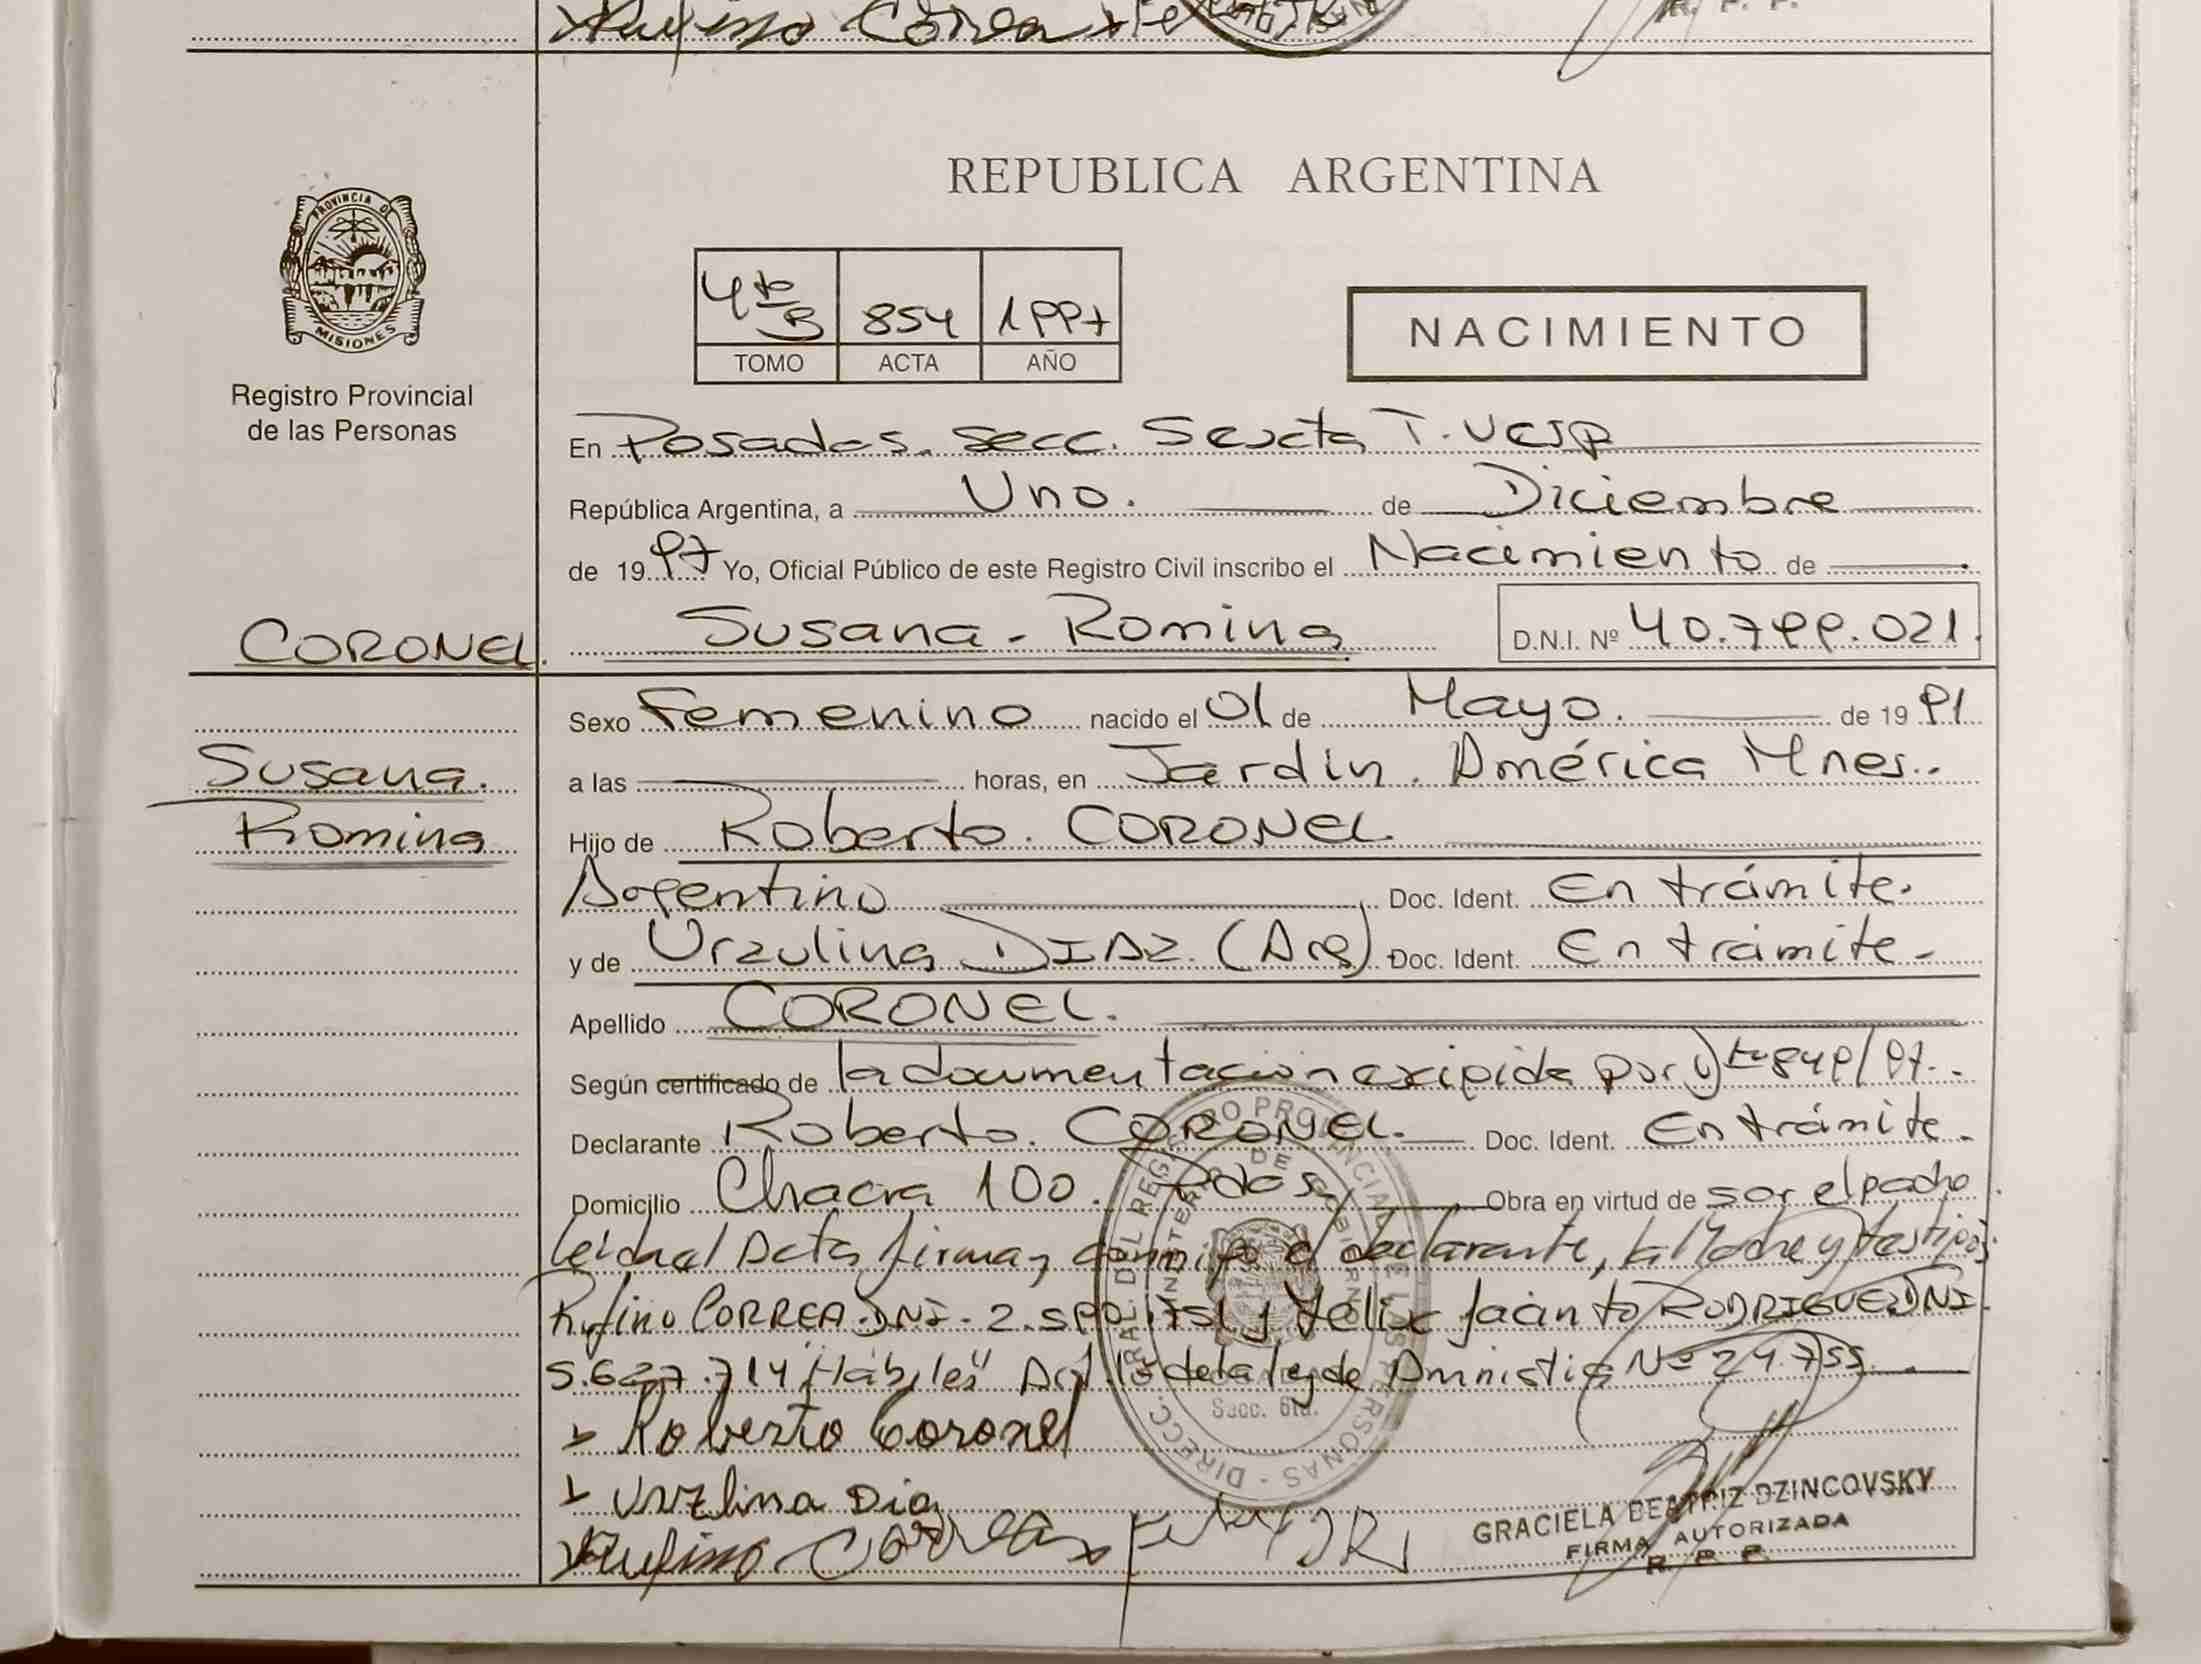 Rufino Correa
R. P. P.
PROVINCIA DE
MISIONES
Registro Provincial
de las Personas
REPUBLICA ARGENTINA
4to B 854 1997
TOMO ACTA AÑO
NACIMIENTO
En Posadas. Secc. Sexta T. Vesp
República Argentina, a Uno. de Diciembre
de 1997 Yo, Oficial Público de este Registro Civil inscribo el Nacimiento de
CORONEL. Susana - Romina D.N.I. Nº 40.799.021.
Sexo Femenino nacido el 01 de Mayo. de 1991
Susana. a las horas, en Jardín. América Mnes..
Romina Hijo de Roberto. CORONEL.
Argentino Doc. Ident. En trámite.
y de Urzulina DIAZ. (Arg) Doc. Ident. En trámite.
Apellido CORONEL.
Según certificado de la documentación exigida por Dto 849/97.
Declarante Roberto. CORONEL. Doc. Ident. En trámite.
Domicilio Chacra 100. Pdas, Obra en virtud de ser el padre
leída el Acta firman conmigo el declarante, la Madre y testigos
Rufino CORREA. DNI - y Felix Jacinto RODRIGUEZ DNI.
5.627.714 "Hábiles" Art. 1º de la ley de Amnistia Nº 24.755.
Roberto Coronel
Urzlina Dia
Rufino Correa
DIRECC. GRAL. DEL REGISTRO PROVINCIAL DE LAS PERSONAS
MINISTERIO DE GOBIERNO
Secc. 6ta.
GRACIELA BEATRIZ DZINCOVSKY
FIRMA AUTORIZADA
R. P. P.